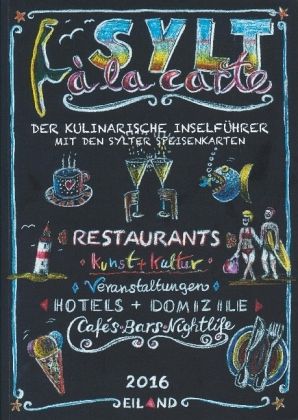 SYLT
à la carte
DER KULINARISCHE INSELFÜHRER
MIT DEN SYLTER SPEISENKARTEN
RESTAURANTS
Kunst + Kultur
Veranstaltungen
HOTELS + DOMIZILE
Cafés · Bars · Nightlife
2016
EILAND